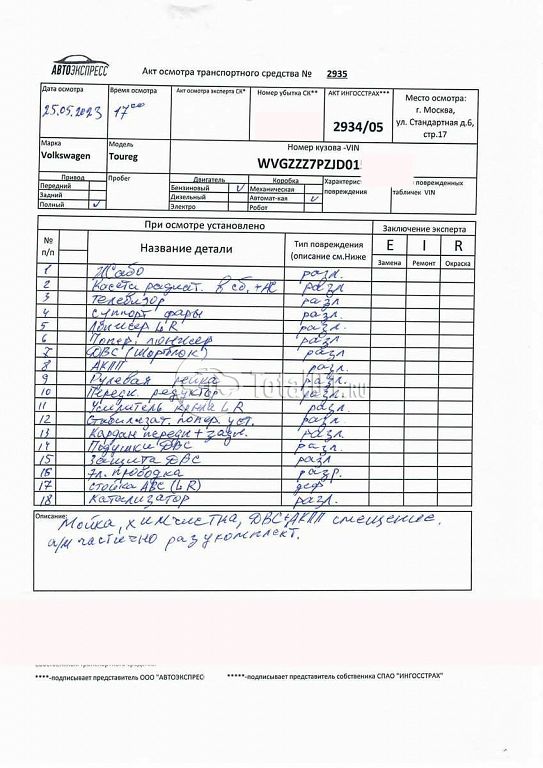 АВТОЭКСПРЕСС
Акт осмотра транспортного средства № 2935
Дата осмотра
25.05.2023
Время осмотра
17 00
Акт осмотра эксперта СК*
Номер убытка СК**
АКТ ИНГОССТРАХ***
2934/05
Место осмотра:
г. Москва,
ул. Стандартная д.6,
стр.17
Марка
Volkswagen
Модель
Toureg
Номер кузова -VIN
WVGZZZ7PZJD01
Привод
Передний
Задний
Полный V
Пробег
Двигатель
Бензиновый V
Дизельный
Электро
Коробка
Механическая
Автомат-кая V
Робот
Характерис
повреждения
повреж­денных
табличек VIN
При осмотре установлено
Заключение эксперта
№ п/п
Название детали
Тип повреждения
(описание см.Ниже
E I R
Замена Ремонт Окраска
1 Жабо разл.
2 Касети радиат. в сб. + АС разл
3 Телевизор разл
4 Суппорт фары разл.
5 Лонжер L R разл.
6 Попер. лонжер разл
7 ДВС (Шортблок) разл
8 АКПП разл.
9 Рулевая рейка разл.
10 Передн. редуктор разл.
11 Усилитель крыла L R разл.
12 Стабилизат. попер. уст. разл.
13 Кардан передн + задн. разл.
14 Подушки ДВС разл.
15 Защита ДВС разл
16 Эл. проводка разр.
17 Стойка АБС (L R) деф
18 Катализатор разл.
Описание:
Мойка, химчистка, ДВС+АКПП смещение,
а/м частично разукомплект.
****-подписывает представитель ООО "АВТОЭКСПРЕС
*****-подписывает представитель собственика СПАО "ИНГОССТРАХ"